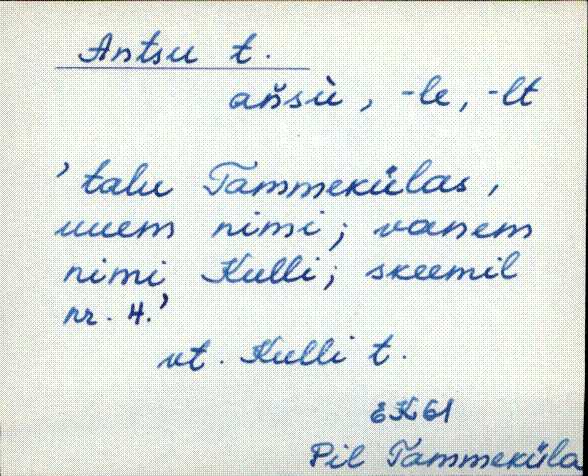 Antsu t.
ańsù, -le, -lt
'talu Tammekülas,
uuem nimi; vanem
nimi Kulli; skeemil
nr. 4.'
vt. Kulli t.
EK61
Pil Tammeküla